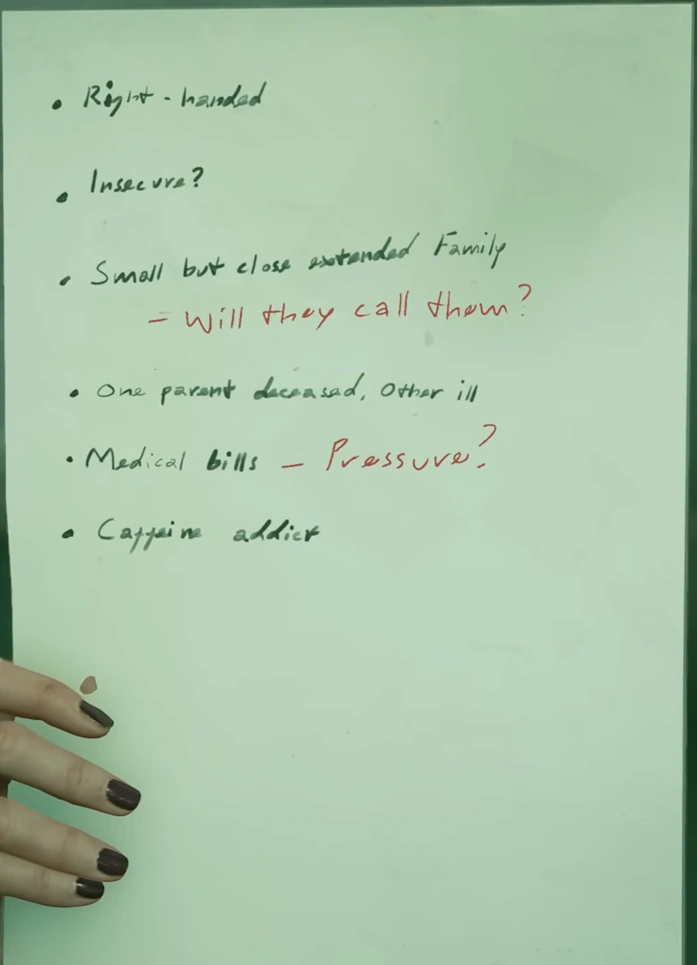 • Right-handed
• Insecure?
• Small but close extended Family
– Will they call them?
• One parent deceased, Other ill
• Medical bills – Pressure?
• Caffeine addict